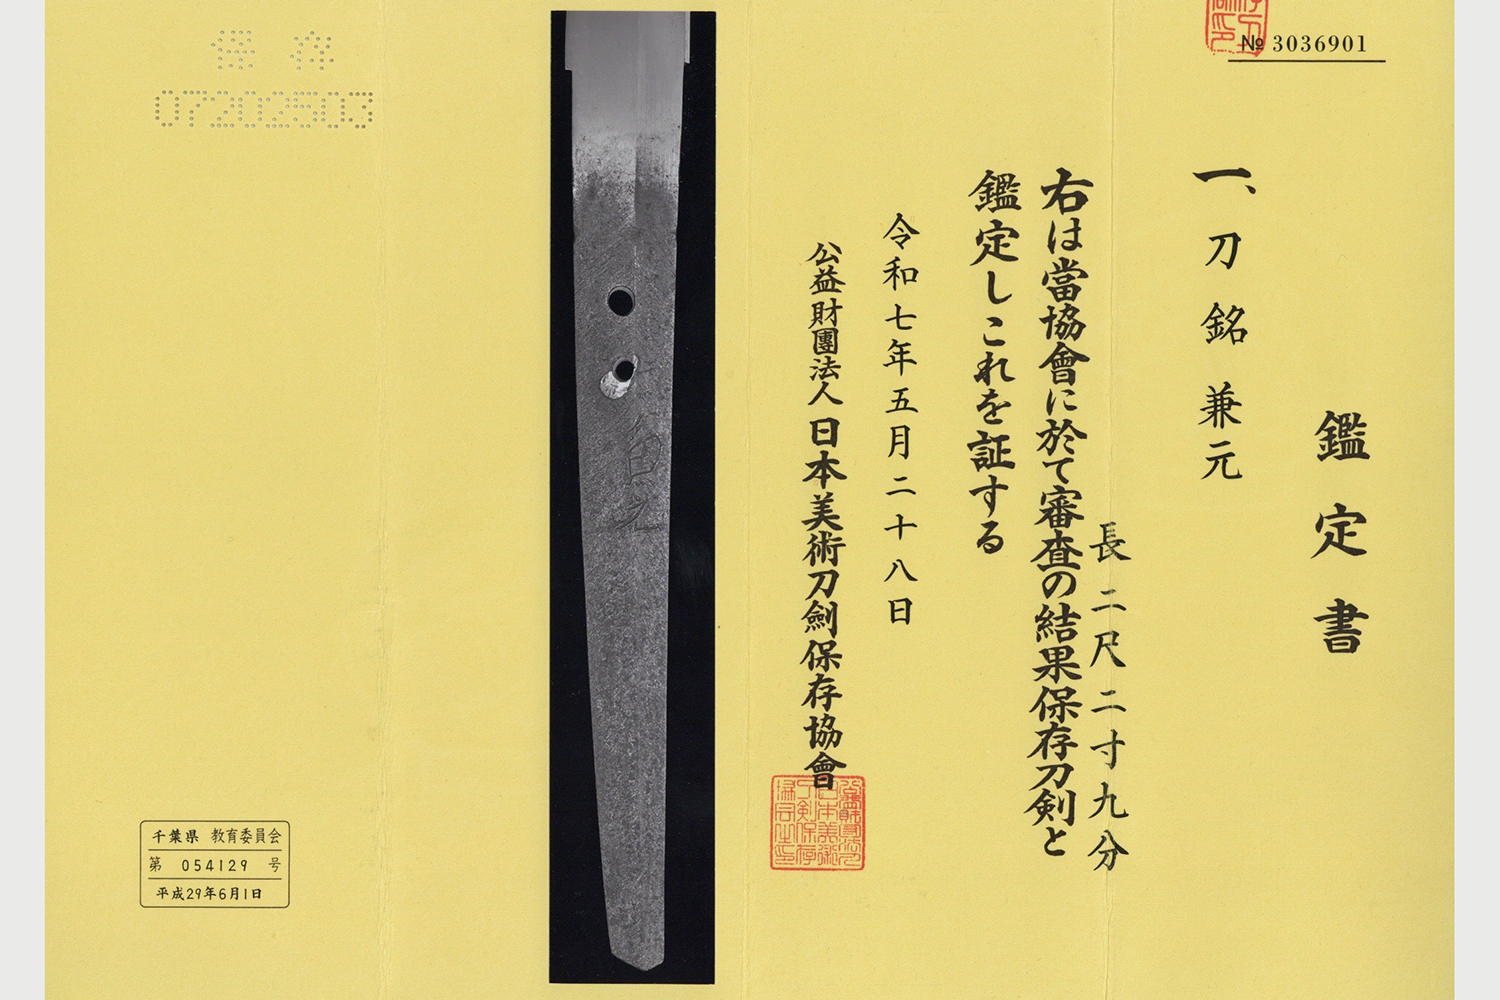 № 3036901
鑑定書
一、刀 銘 兼元
長 二尺二寸九分
右は當協會に於て審査の結果保存刀剣と
鑑定しこれを証する
令和七年五月二十八日
公益財團法人 日本美術刀劍保存協會
保存
07202503
兼元
千葉県 教育委員会
第 054129 号
平成29年6月1日